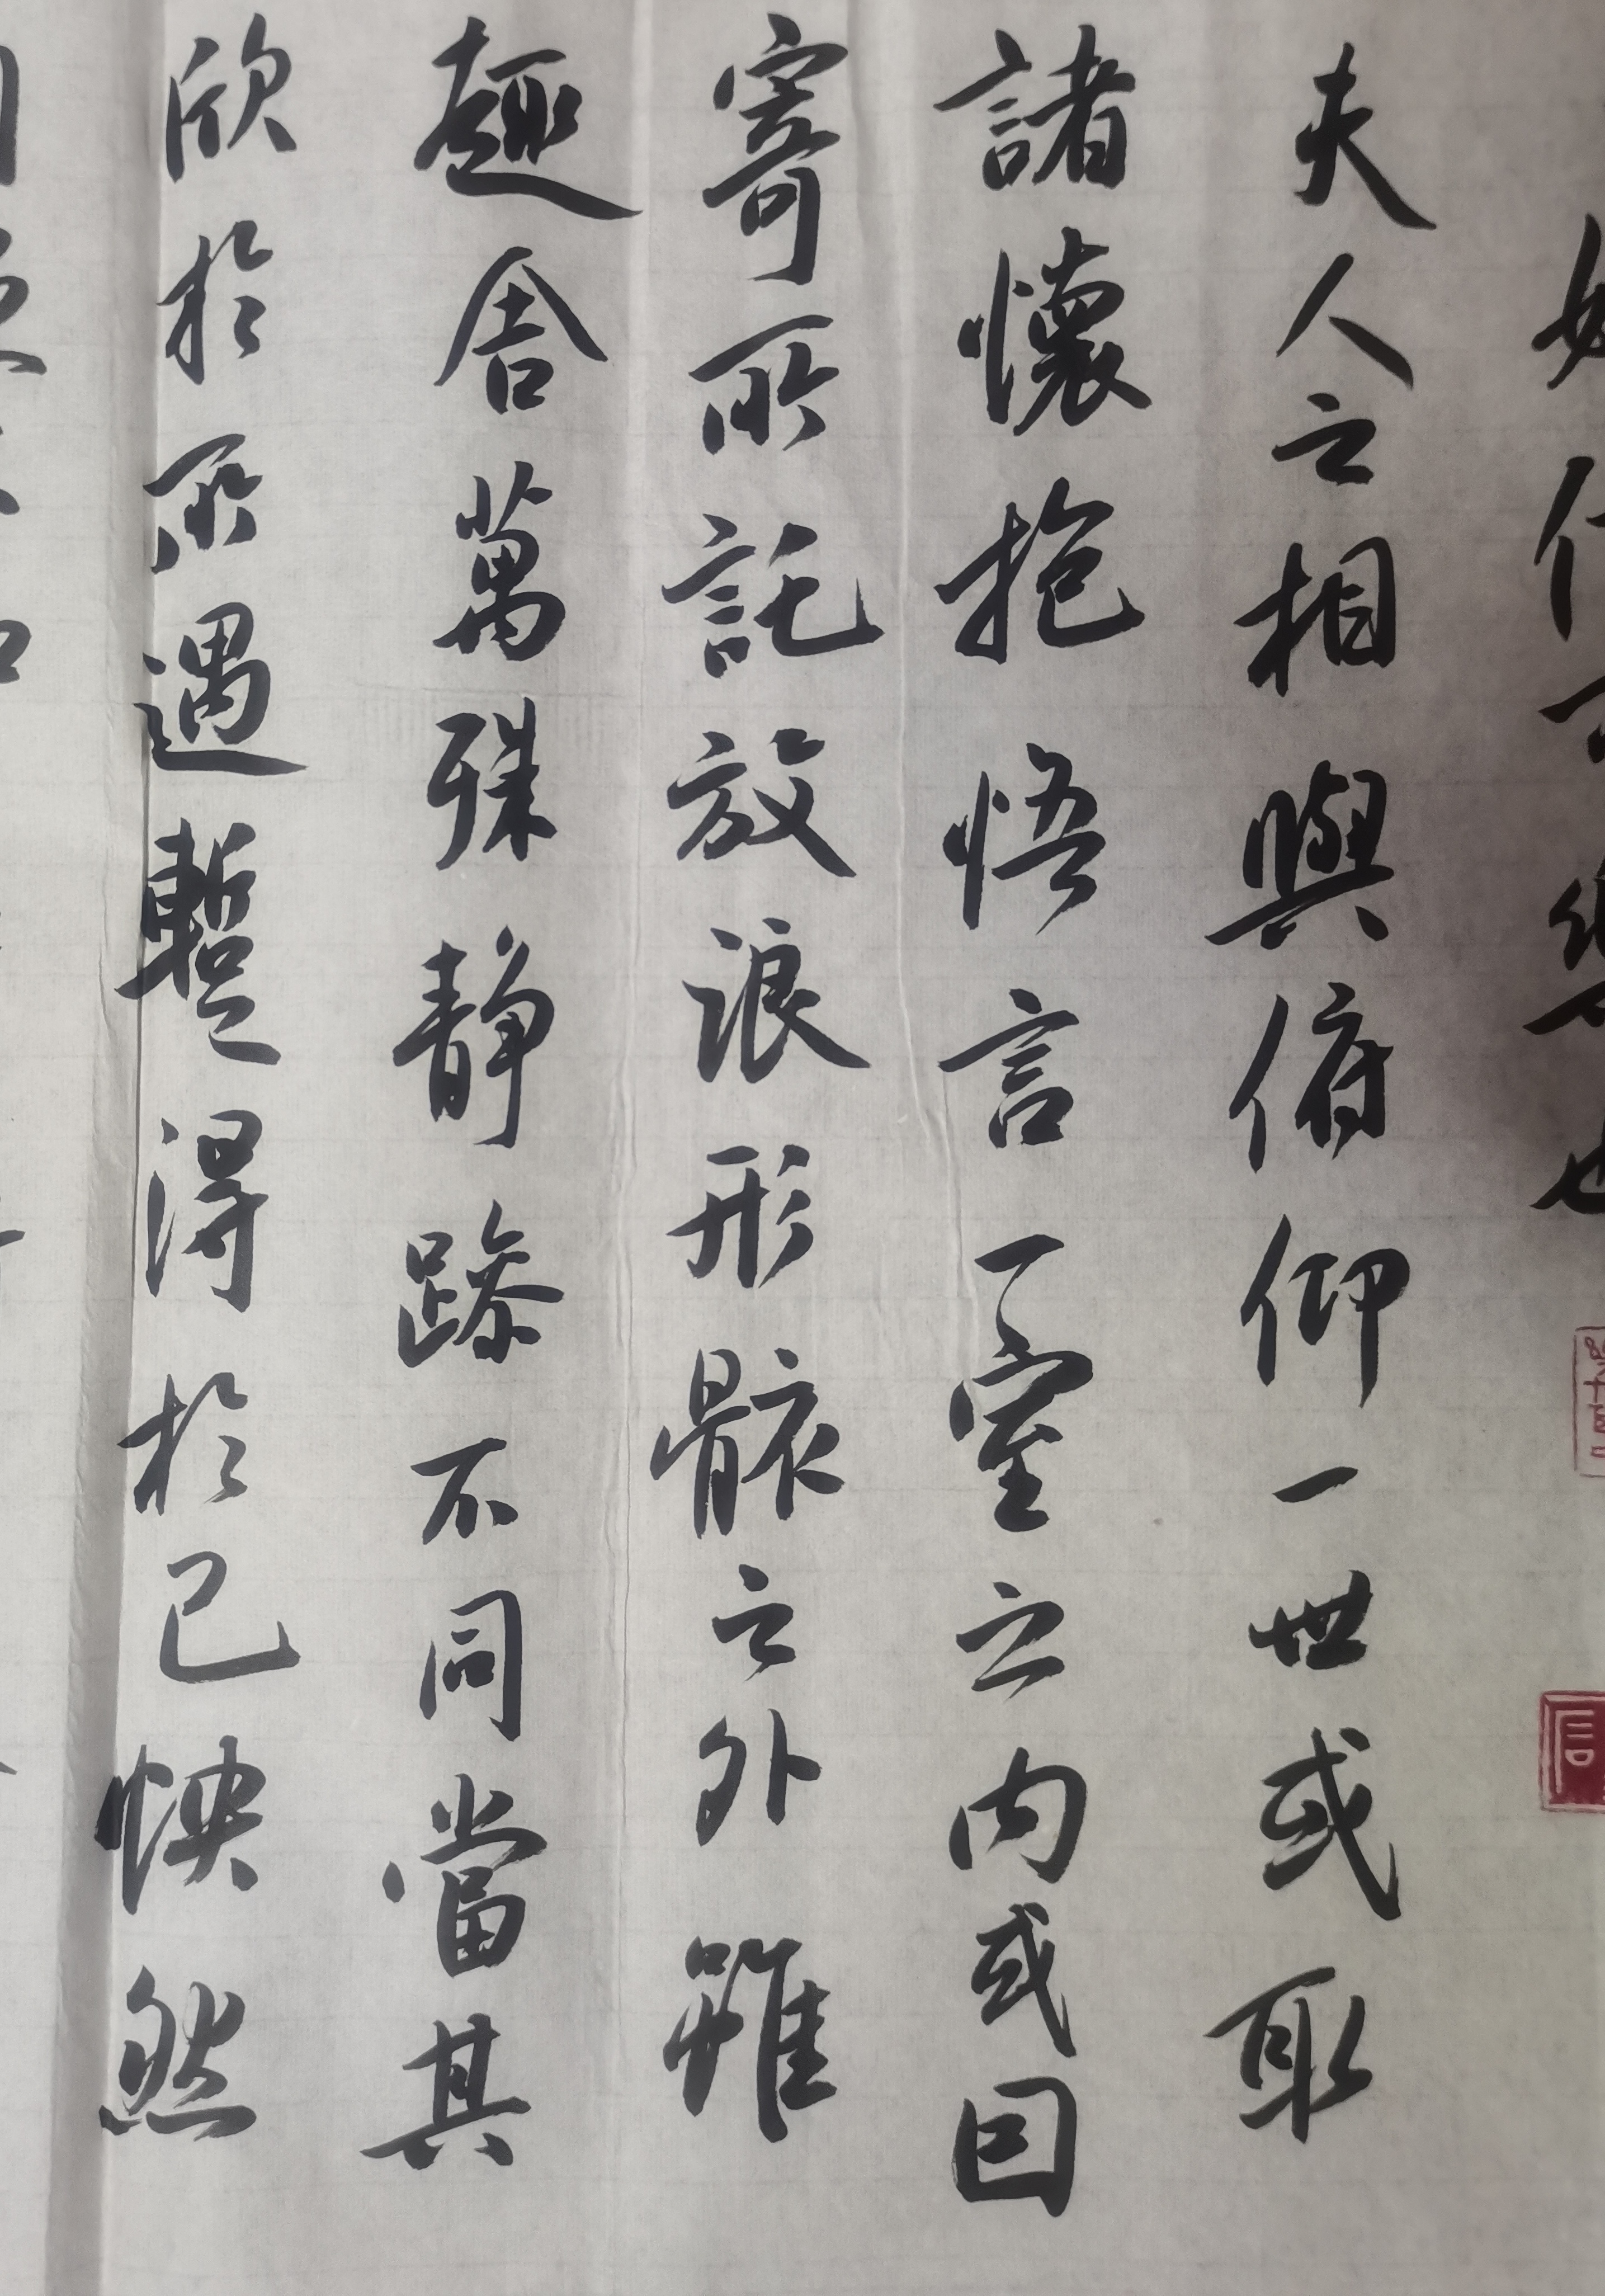 夫人之相與俯仰一世或取
諸懷抱悟言一室之内或因
寄所託放浪形骸之外雖
趣舍萬殊静躁不同當其
欣於所遇暫得於己怏然